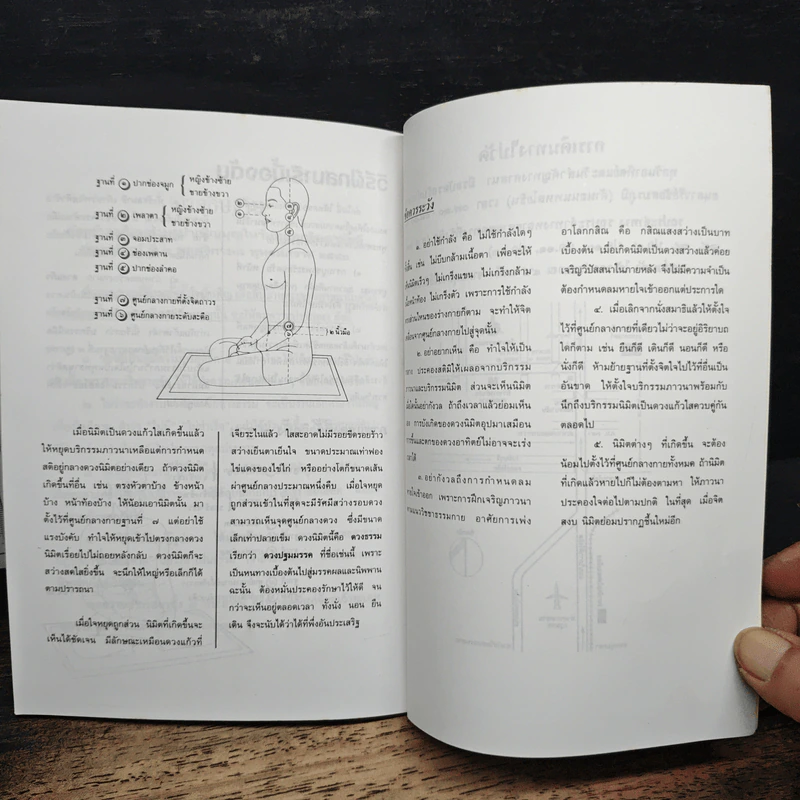 ฐานที่ ๑ ปากช่องจมูก { หญิงข้างซ้าย
ชายข้างขวา
ฐานที่ ๒ เพลาตา { หญิงข้างซ้าย
ชายข้างขวา
ฐานที่ ๓ จอมประสาท
ฐานที่ ๔ ช่องเพดาน
ฐานที่ ๕ ปากช่องลำคอ
ฐานที่ ๗ ศูนย์กลางกายที่ตั้งจิตถาวร
ฐานที่ ๖ ศูนย์กลางกายระดับสะดือ
๒ นิ้วมือ
เมื่อนิมิตเป็นดวงแก้วใสเกิดขึ้นแล้ว
ให้หยุดบริกรรมภาวนาเหลือแต่การกำหนด
สติอยู่กลางดวงนิมิตอย่างเดียว ถ้าดวงนิมิต
เกิดขึ้นที่อื่น เช่น ตรงหัวตาบ้าง ข้างหน้า
บ้าง หน้าท้องบ้าง ให้น้อมเอานิมิตนั้น มา
ตั้งไว้ที่ศูนย์กลางกายฐานที่ ๗ แต่อย่าใช้
แรงบังคับ ทำใจให้หยุดเข้าไปตรงกลางดวง
นิมิตเรื่อยไปไม่ถอยหลังกลับ ดวงนิมิตก็จะ
สว่างสดใสยิ่งขึ้น จะนึกให้ใหญ่หรือเล็กก็ได้
ตามปรารถนา
เมื่อใจหยุดถูกส่วน นิมิตที่เกิดขึ้นจะ
เห็นได้ชัดเจน มีลักษณะเหมือนดวงแก้วที่
เจียระไนแล้ว ใสสะอาดไม่มีรอยขีดรอยร้าว
สว่างเย็นตาเย็นใจ ขนาดประมาณเท่าฟอง
ไข่แดงของไข่ไก่ หรืออย่างโตก็ขนาดเส้น
ผ่าศูนย์กลางประมาณหนึ่งคืบ เมื่อใจหยุด
ถูกส่วนเข้าในที่สุดจะมีรัศมีสว่างรอบดวง
สามารถเห็นจุดศูนย์กลางดวง ซึ่งมีขนาด
เล็กเท่าปลายเข็ม ดวงนิมิตนี้คือ ดวงธรรม
เรียกว่า ดวงปฐมมรรค ที่ชื่อเช่นนี้ เพราะ
เป็นหนทางเบื้องต้นไปสู่มรรคผลและนิพพาน
ฉะนั้น ต้องหมั่นประคองรักษาไว้ให้ดี จน
กว่าจะเห็นอยู่ตลอดเวลา ทั้งนั่ง นอน ยืน
เดิน จึงจะนับได้ว่าได้ที่พึ่งอันประเสริฐ
ควรระวัง
๑. อย่าใช้กำลัง คือ ไม่ใช้กำลังใดๆ
เช่น ไม่บีบกล้ามเนื้อตา เพื่อจะให้
นิมิตเร็วๆ ไม่เกร็งแขน ไม่เกร็งกล้าม
หน้าท้อง ไม่เกร็งตัว เพราะการใช้กำลัง
ส่วนไหนของร่างกายก็ตาม จะทำให้จิต
จากศูนย์กลางกายไปสู่จุดนั้น
๒. อย่าอยากเห็น คือ ทำใจให้เป็น
ประคองสติมิให้เผลอจากบริกรรม
และบริกรรมนิมิต ส่วนจะเห็นนิมิต
นั้นอย่ากังวล ถ้าถึงเวลาแล้วย่อมเห็น
การบังเกิดของดวงนิมิตอุปมาเสมือน
ขึ้นและตกของดวงอาทิตย์ไม่อาจจะเร่ง
ได้
๓. อย่ากังวลถึงการกำหนดลม
หายใจเข้าออก เพราะการฝึกเจริญภาวนา
ตามแนววิชชาธรรมกาย อาศัยการเพ่ง
อาโลกกสิณ คือ กสิณแสงสว่างเป็นบาท
เบื้องต้น เมื่อเกิดนิมิตเป็นดวงสว่างแล้วค่อย
เจริญวิปัสสนาในภายหลัง จึงไม่มีความจำเป็น
ต้องกำหนดลมหายใจเข้าออกแต่ประการใด
๔. เมื่อเลิกจากนั่งสมาธิแล้วให้ตั้งใจ
ไว้ที่ศูนย์กลางกายที่เดียวไม่ว่าจะอยู่อิริยาบถ
ใดก็ตาม เช่น ยืนก็ดี เดินก็ดี นอนก็ดี หรือ
นั่งก็ดี ห้ามย้ายฐานที่ตั้งจิตใจไปไว้ที่อื่นเป็น
อันขาด ให้ตั้งใจบริกรรมภาวนาพร้อมกับ
นึกถึงบริกรรมนิมิตเป็นดวงแก้วใสควบคู่กัน
ตลอดไป
๕. นิมิตต่างๆ ที่เกิดขึ้น จะต้อง
น้อมไปตั้งไว้ที่ศูนย์กลางกายทั้งหมด ถ้านิมิต
ที่เกิดแล้วหายไปก็ไม่ต้องตามหา ให้ภาวนา
ประคองใจต่อไปตามปกติ ในที่สุด เมื่อจิต
สงบ นิมิตย่อมปรากฏขึ้นใหม่อีก